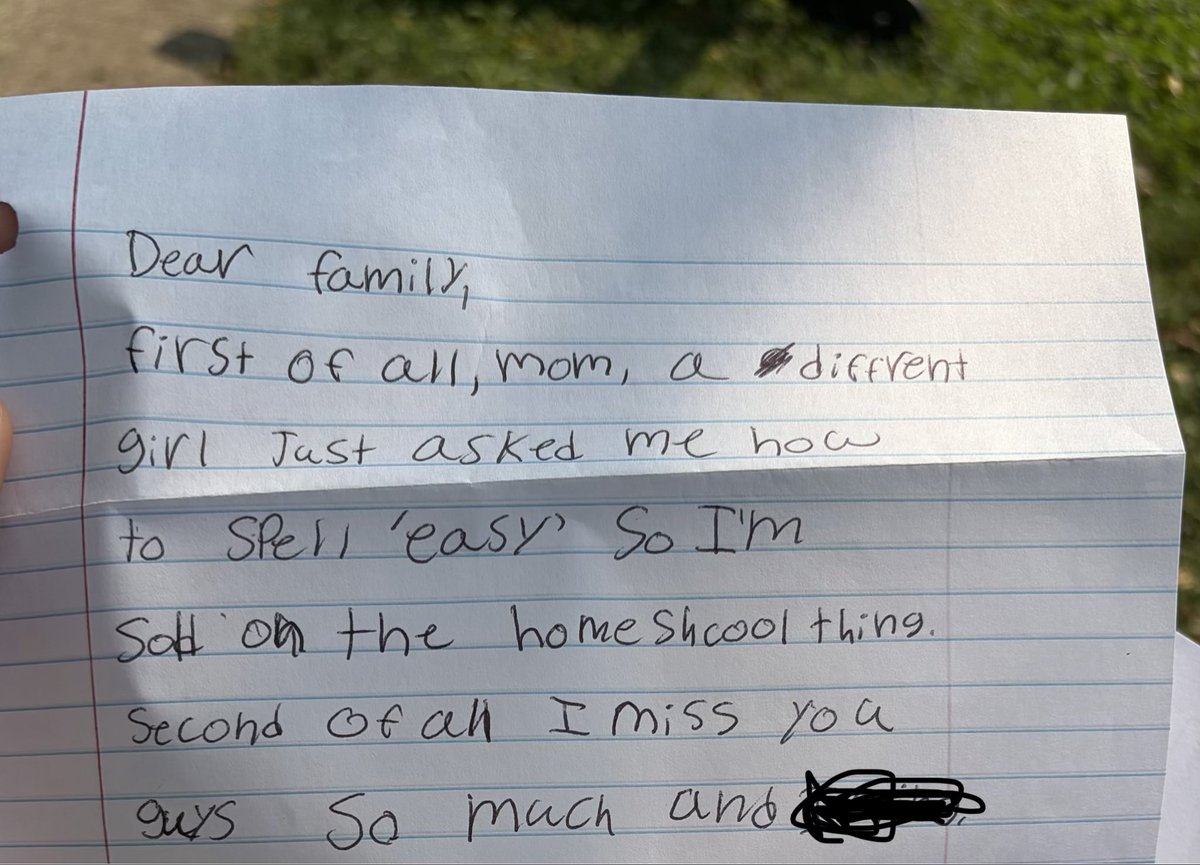 Dear family,
first of all, mom, a diffrent
girl Just asked me how
to spell 'easy' So I'm
Sold on the homeshcool thing.
Second of all I miss you
guys So much and